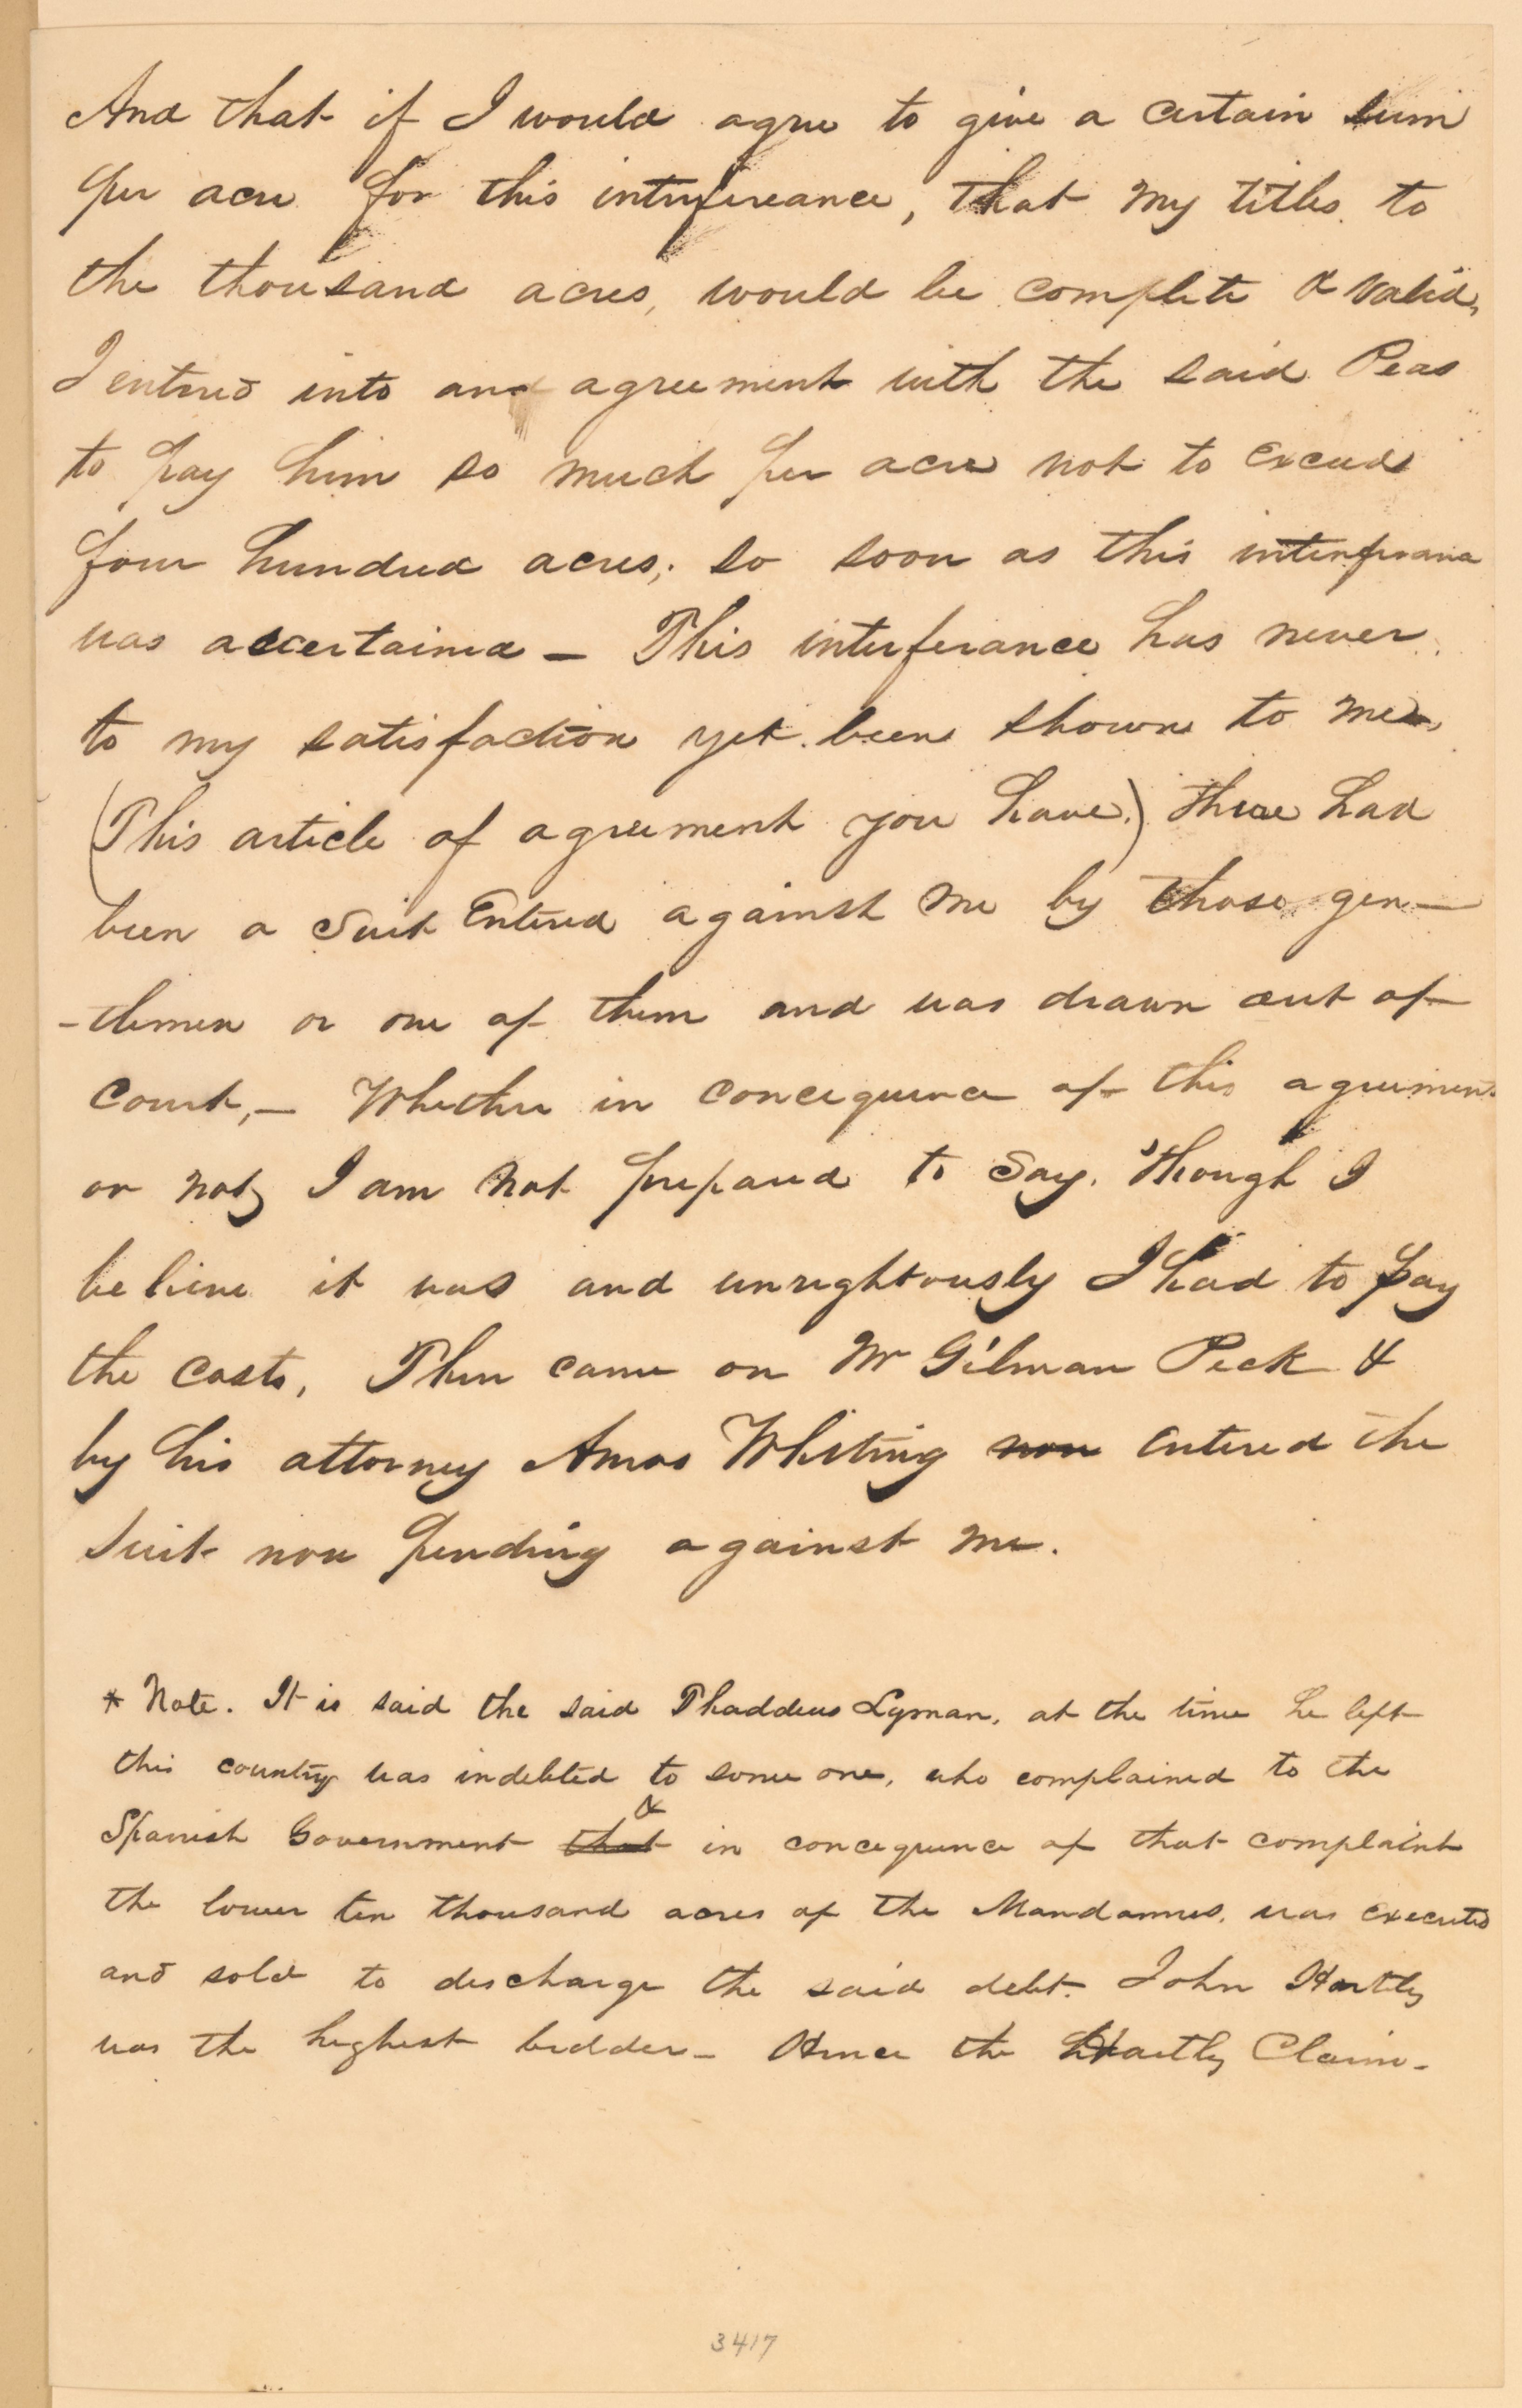 And that if I would agree to give a certain sum
per acre for this interfereance, that my titles to
the thousand acres, would be complete & valid,
I entered into and agreement with the said Peas
to pay him so much per acre not to exceed
four hundred acres; so soon as this interferance
was ascertained — This interferance has never
to my satisfaction yet been shown to me.
(This article of agreement you have.) there had
been a Suit Entered against me by those gen-
-tlemen or one of them and was drawn out of
Court, — Whether in concequence of this agreement
or not, I am not prepared to Say. Though I
believe it was and unrightously I had to pay
the Costs. Then came on Mr Gilman Peck &
by his attorney Amos Whiting now entered the
Suit now pending against me.
* Note. It is said the said Thaddeus Lyman, at the time he left
this country was indebted to some one, who complained to the
&
Spanish Government that in concequence of that complaint
the lower ten thousand acres of the Mandamus, was executed
and sold to discharge the said debt. John Hartly
was the highest bidder — Hence the Hartly Claim —
3417